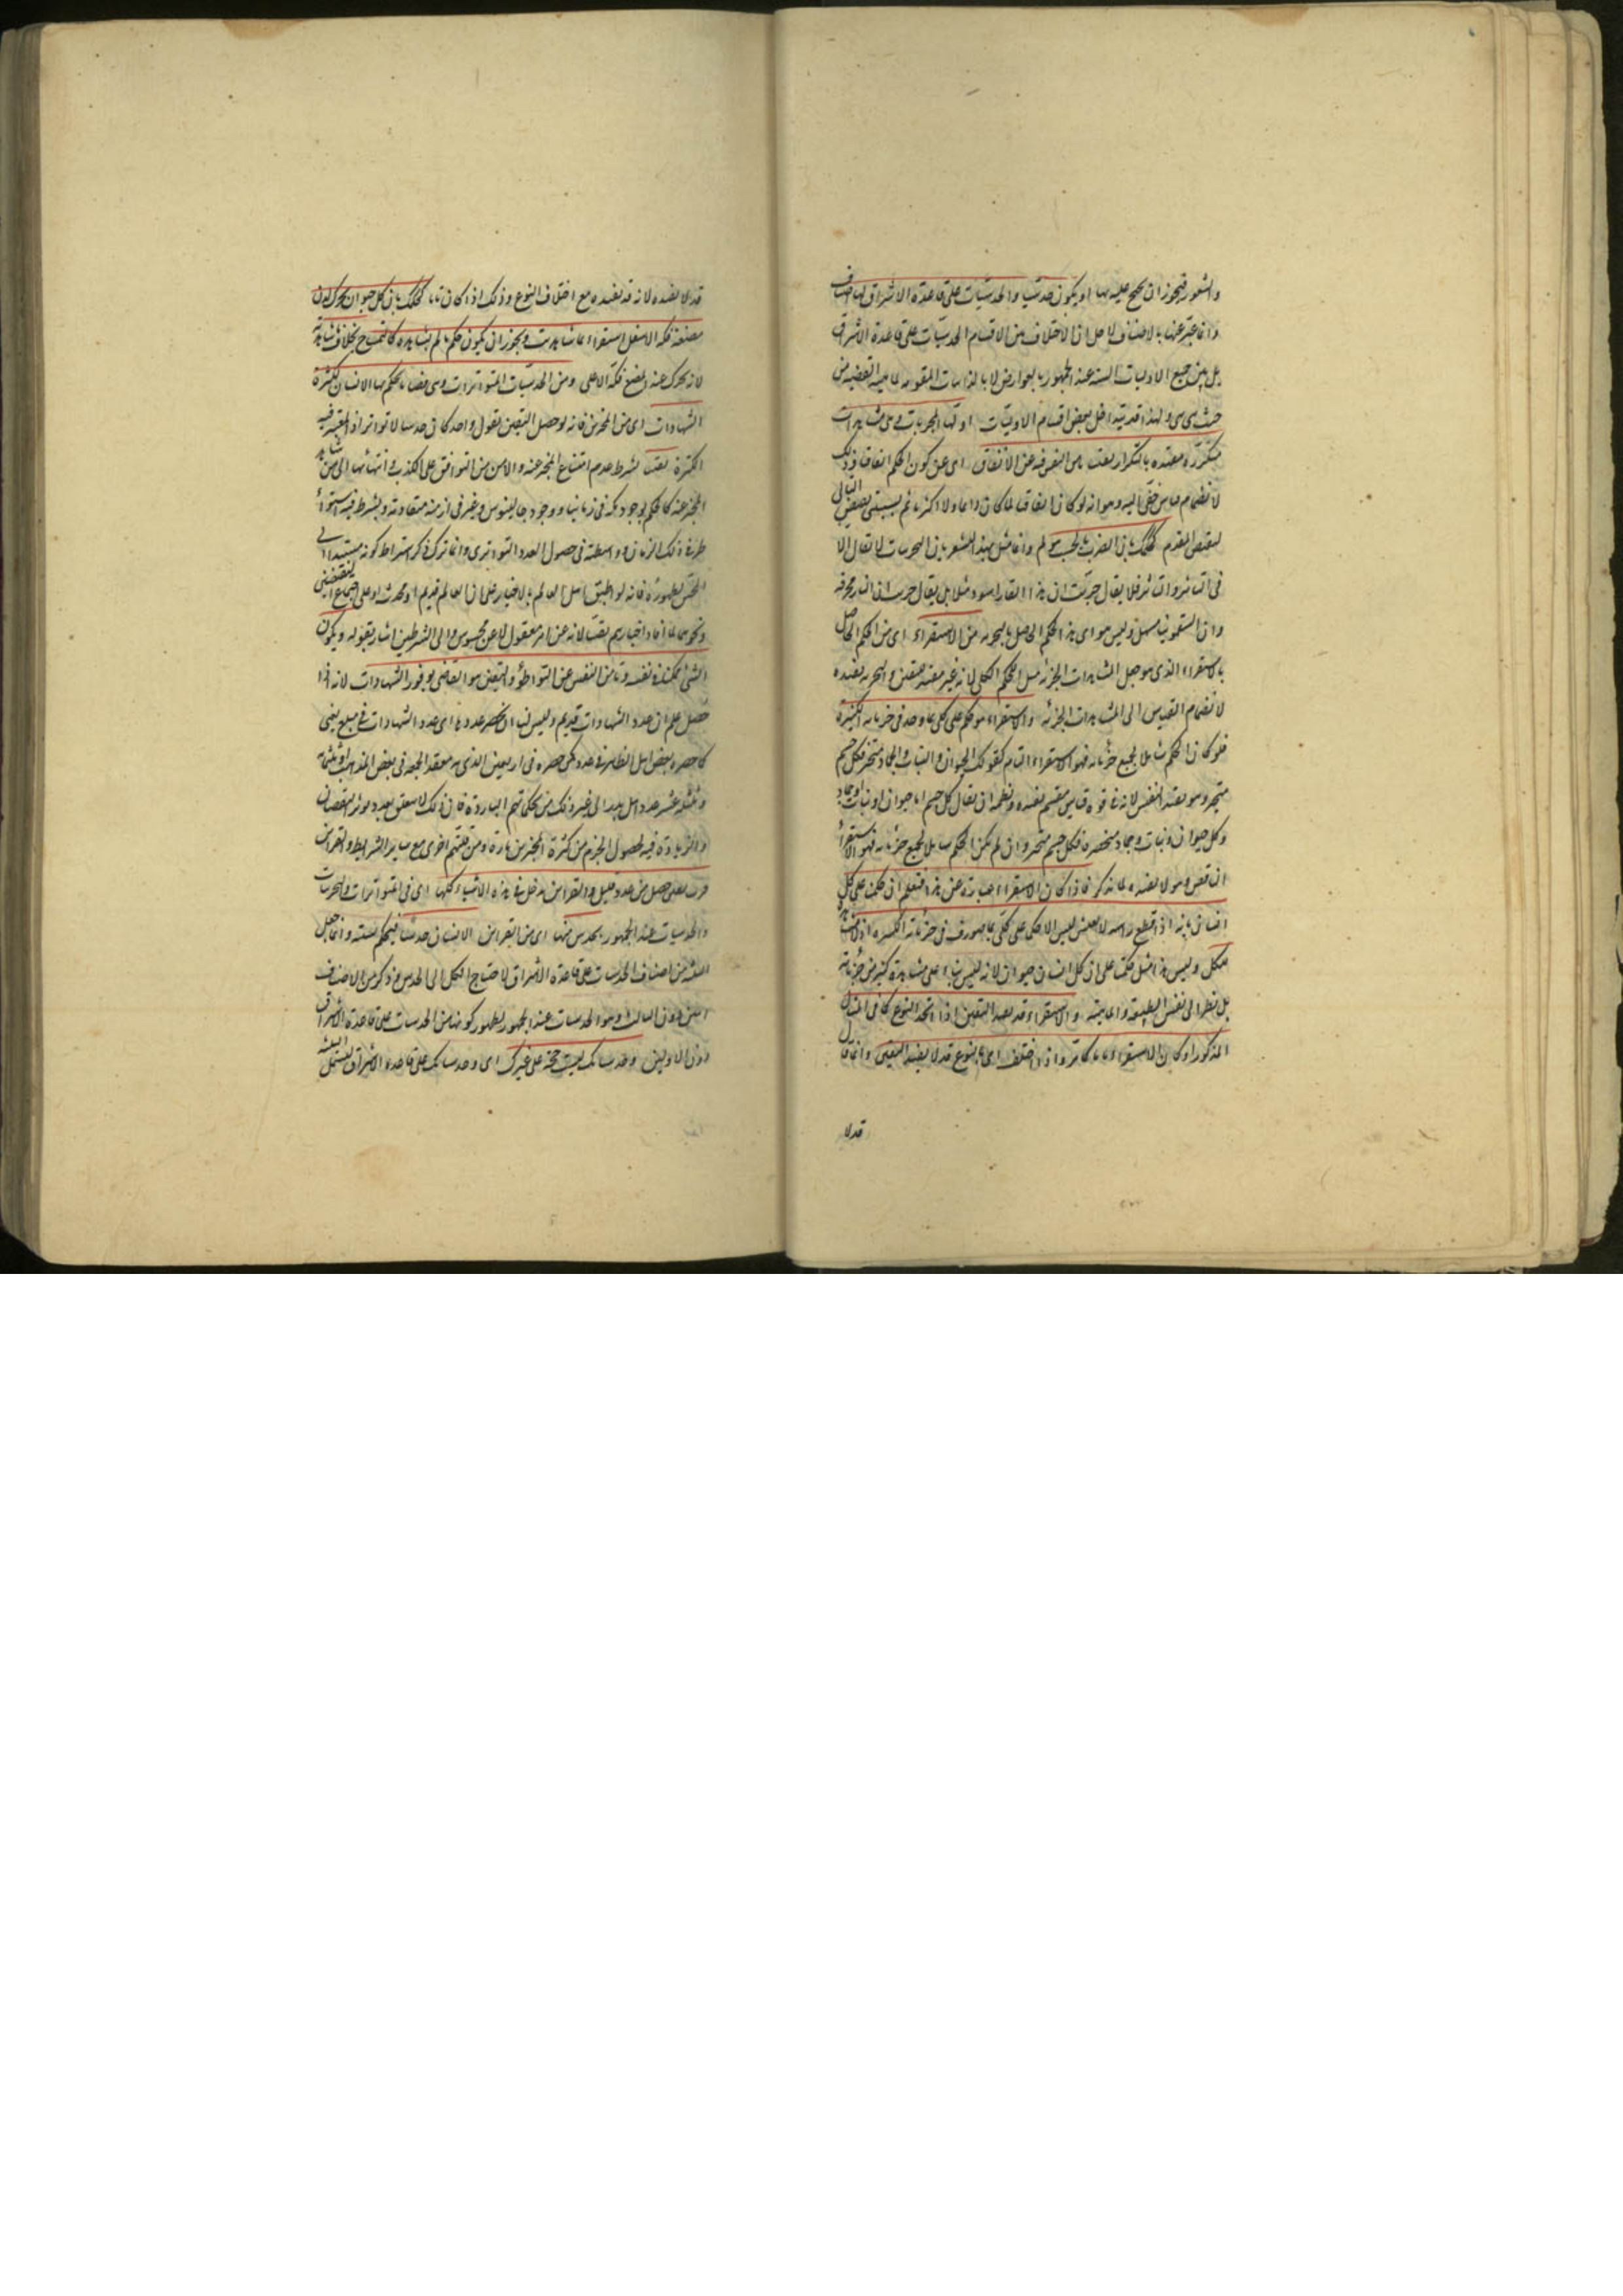 والشعور فيجوز ان يحتج عليه بها او يكون حدسيا والحدسيات على قاعدة الاشراق لها اصناف
وانما عبر عنها بالاصناف لا
بل بين جميع الاوليات الستة عند الجمهور بالعوارض لا بالذاتيات المقومة لماهية القضية من
حيث هي هي ولهذا قد يتداخل بعض اقسام الاوليات اولها المجربات وهي مشاهدات
متكررة مفيدة بالتكرار يقينا تأمن النفس فيه عن الاتفاق اى عن كون الحكم اتفاقا وذلك
لانضمام قياس خفى اليه وهو انه لو كان اتفاقيا لما كان دائما ولا اكثريا ثم يستثنى نقيض التالى
لنقيض المقدم كحكمك بان الضرب بالخشب مولم وانما مثل بهذا المشعر بان التجربيات لا تقال الا
فى التأثير والتأثر فلا يقال جربت ان هذا القار اسود مثلا بل يقال جربت ان النار محرقة
وان السقمونيا مسهل وليس هو اى هذا الحكم الحاصل بالتجربة من الاستقراء اى من الحكم الحاصل
بالاستقراء الذى هو جعل المشاهدات الجزئية الحكم الكلى لانه غير مفيد لليقين والتجربة تفيده
لانضمام القياس الى المشاهدات الجزئية والاستقراء هو حكم على كلى بما وجد فى جزئياته الكثيرة
فلو كان الحكم شاملا لجميع جزئياته فهو الاستقراء التام كقولك الحيوان والنبات والجماد متحيز فكل جسم
متحيز وهو يفيد اليقين لانه فى قوة قياس مقسم يفيده ونظمه ان يقال كل جسم اما حيوان او نبات او جماد
وكل حيوان ونبات وجماد متحيز فكل جسم متحيز وان لم يكن الحكم شاملا لجميع جزئياته فهو الاستقراء
الناقص وهو لا يفيده لما نذكر فاذا كان الاستقراء عبارة عن هذا فتعلم ان حكمنا على كل
انسان بانه اذا قطع رأسه لا يعيش ليس الا حكما على كلى بما صودف فى جزئياته الكثيرة اذ لا مشاهدة
للكل وليس هذا مثل حكمنا على ان كل انسان حيوان لانه ليس بناء على مشاهدة كثير من جزئياته
بل نظرا الى نفس الطبيعة والماهية والاستقراء قد يفيد اليقين اذا اتحد النوع كما فى المثال
المذكور او كان الاستقراء تاما كما مر واذا اختلف اى النوع قد لا يفيد اليقين وانما قال
قد لا
قد لا يفيده لانه قد يفيده مع اختلاف النوع وذلك اذا كان تاما كحكمك بان كل حيوان يحرك لدن
مضغه فكه الاسفل استقراء بما شاهدت ويجوز ان يكون حكم ما لم تشاهده كالتمساح بخلاف ما شاهدته
لانه يحرك عند المضغ فكه الاعلى ومن الحدسيات المتواترات وهى قضايا يحكم بها الانسان لكثرة
الشهادات اى من المخبرين فانه لو حصل اليقين بقول واحد كان حدسيا لا تواترا اذ المعتبر فيه
الكثرة يقينا بشرط عدم امتناع المخبر عنه والامن من التوافق على الكذب وانتهائها الى من شاهد
المخبر عنه كالحكم بوجود مكة فى زماننا ووجود جالينوس وغيره فى ازمنة متقادمة ويشترط فيه استواء
طرفى ذلك الزمان وواسطته فى حصول العدد التواترى وانما ترك ذكر اشتراط كونه مستندا الى
الحس لظهوره فانه لو اطبق اهل العالم بالاخبار على ان العالم قديم او محدث او على اجتماع النقيضين
ونحوه لما افاد اخبارهم يقينا لانه عن امر معقول لا عن محسوس والى الشرطين اشار بقوله ويكون
الشئ ممكنا فى نفسه وتأمن النفس عن التواطؤ واليقين هو القاضى بوفور الشهادات لانه اذا
حصل علم ان عدد الشهادات قد تم وليس لنا ان نحصر عددها اى عدد الشهادات فى مبلغ معين
كما حصره بعض اهل النظائر فى عدد كمن حصره فى اربعين الذى به معقد الجمعة فى بعض المذاهب او ثلثمائة
وثلثة عشر عدد اهل بدر الى غير ذلك من تحكماتهم الباردة فان ذلك لا يتعلق بعدد يوثر النقصان
والزيادة فيه لحصول الجزم من كثرة المخبرين تارة ومن قلتهم اخرى مع ساير الشرايط والقراين
فرب يقين حصل من عدد قليل وللقراين مدخل فى هذه الاشياء كلها اى فى المتواترات والتجربيات
والحدسيات عند الجمهور يحدس منها اى من القراين الانسان حدسا فيحكم بسببه وانما جعل
الثلثة من اصناف الحدسيات على قاعدة الاشراق لاحتياج الكل الى الحدس وذكر من الاصناف
اثنين دون الثالث وهو الحدسيات عند الجمهور لظهور كونها من الحدسيات على قاعدة الاشراق
دون الاوليين وحدسياتك ليست حجة على غيرك اى وحدسياتك على قاعدة الاشراق ليشمل الثلثة